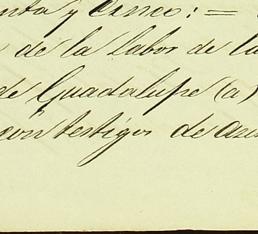 nta y cinco: =
de la labor de la
de Guadalupe (a)
con testigos de asis